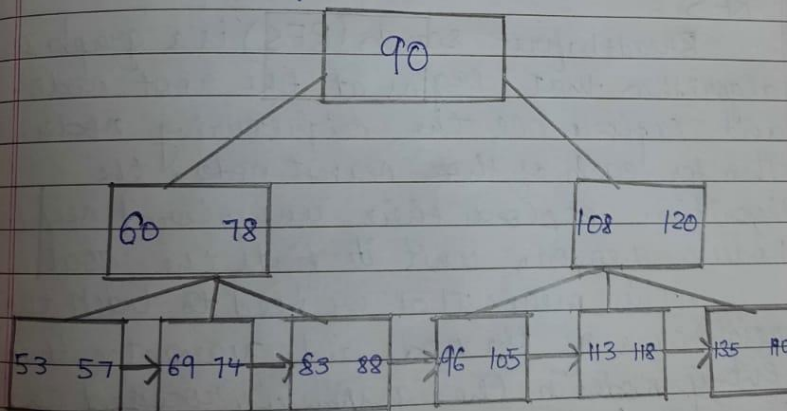 90
60 78 108 120
53 57 69 74 83 88 96 105 113 118 135